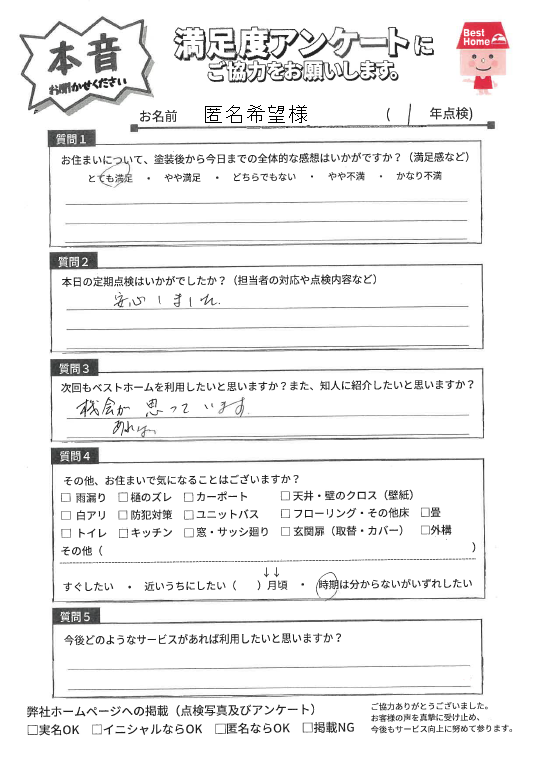 本音
お聞かせください
満足度アンケートに
ご協力をお願いします。
Best Home
お名前 匿名希望様 ( 1 年点検)
質問1
お住まいについて、塗装後から今日までの全体的な感想はいかがですか？（満足感など）
とても満足 ・ やや満足 ・ どちらでもない ・ やや不満 ・ かなり不満
質問2
本日の定期点検はいかがでしたか？（担当者の対応や点検内容など）
安心しました
質問3
次回もベストホームを利用したいと思いますか？また、知人に紹介したいと思いますか？
機会が 思っています
あれば、
質問4
その他、お住まいで気になることはございますか？
□ 雨漏り □ 樋のズレ □ カーポート □ 天井・壁のクロス（壁紙）
□ 白アリ □ 防犯対策 □ ユニットバス □ フローリング・その他床 □畳
□ トイレ □ キッチン □ 窓・サッシ廻り □ 玄関扉（取替・カバー） □外構
その他（ ）
↓↓
すぐしたい ・ 近いうちにしたい（ ）月頃 ・ 時期は分からないがいずれしたい
質問5
今後どのようなサービスがあれば利用したいと思いますか？
弊社ホームページへの掲載（点検写真及びアンケート）
□実名OK □イニシャルならOK □匿名ならOK □掲載NG
ご協力ありがとうございました。
お客様の声を真摯に受け止め、
今後もサービス向上に努めて参ります。